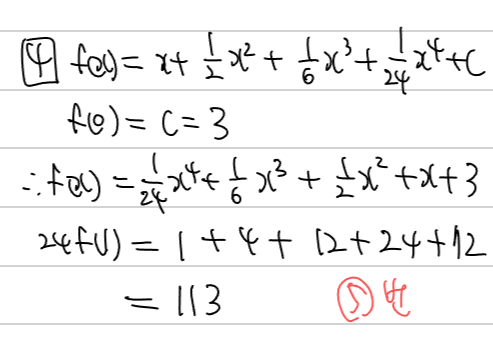 4 f(x) = x + 1/2 x² + 1/6 x³ + 1/24 x⁴ + C
f(0) = C = 3
∴ f(x) = 1/24 x⁴ + 1/6 x³ + 1/2 x² + x + 3
24f(1) = 1 + 4 + 12 + 24 + 72
= 113 ⑤번